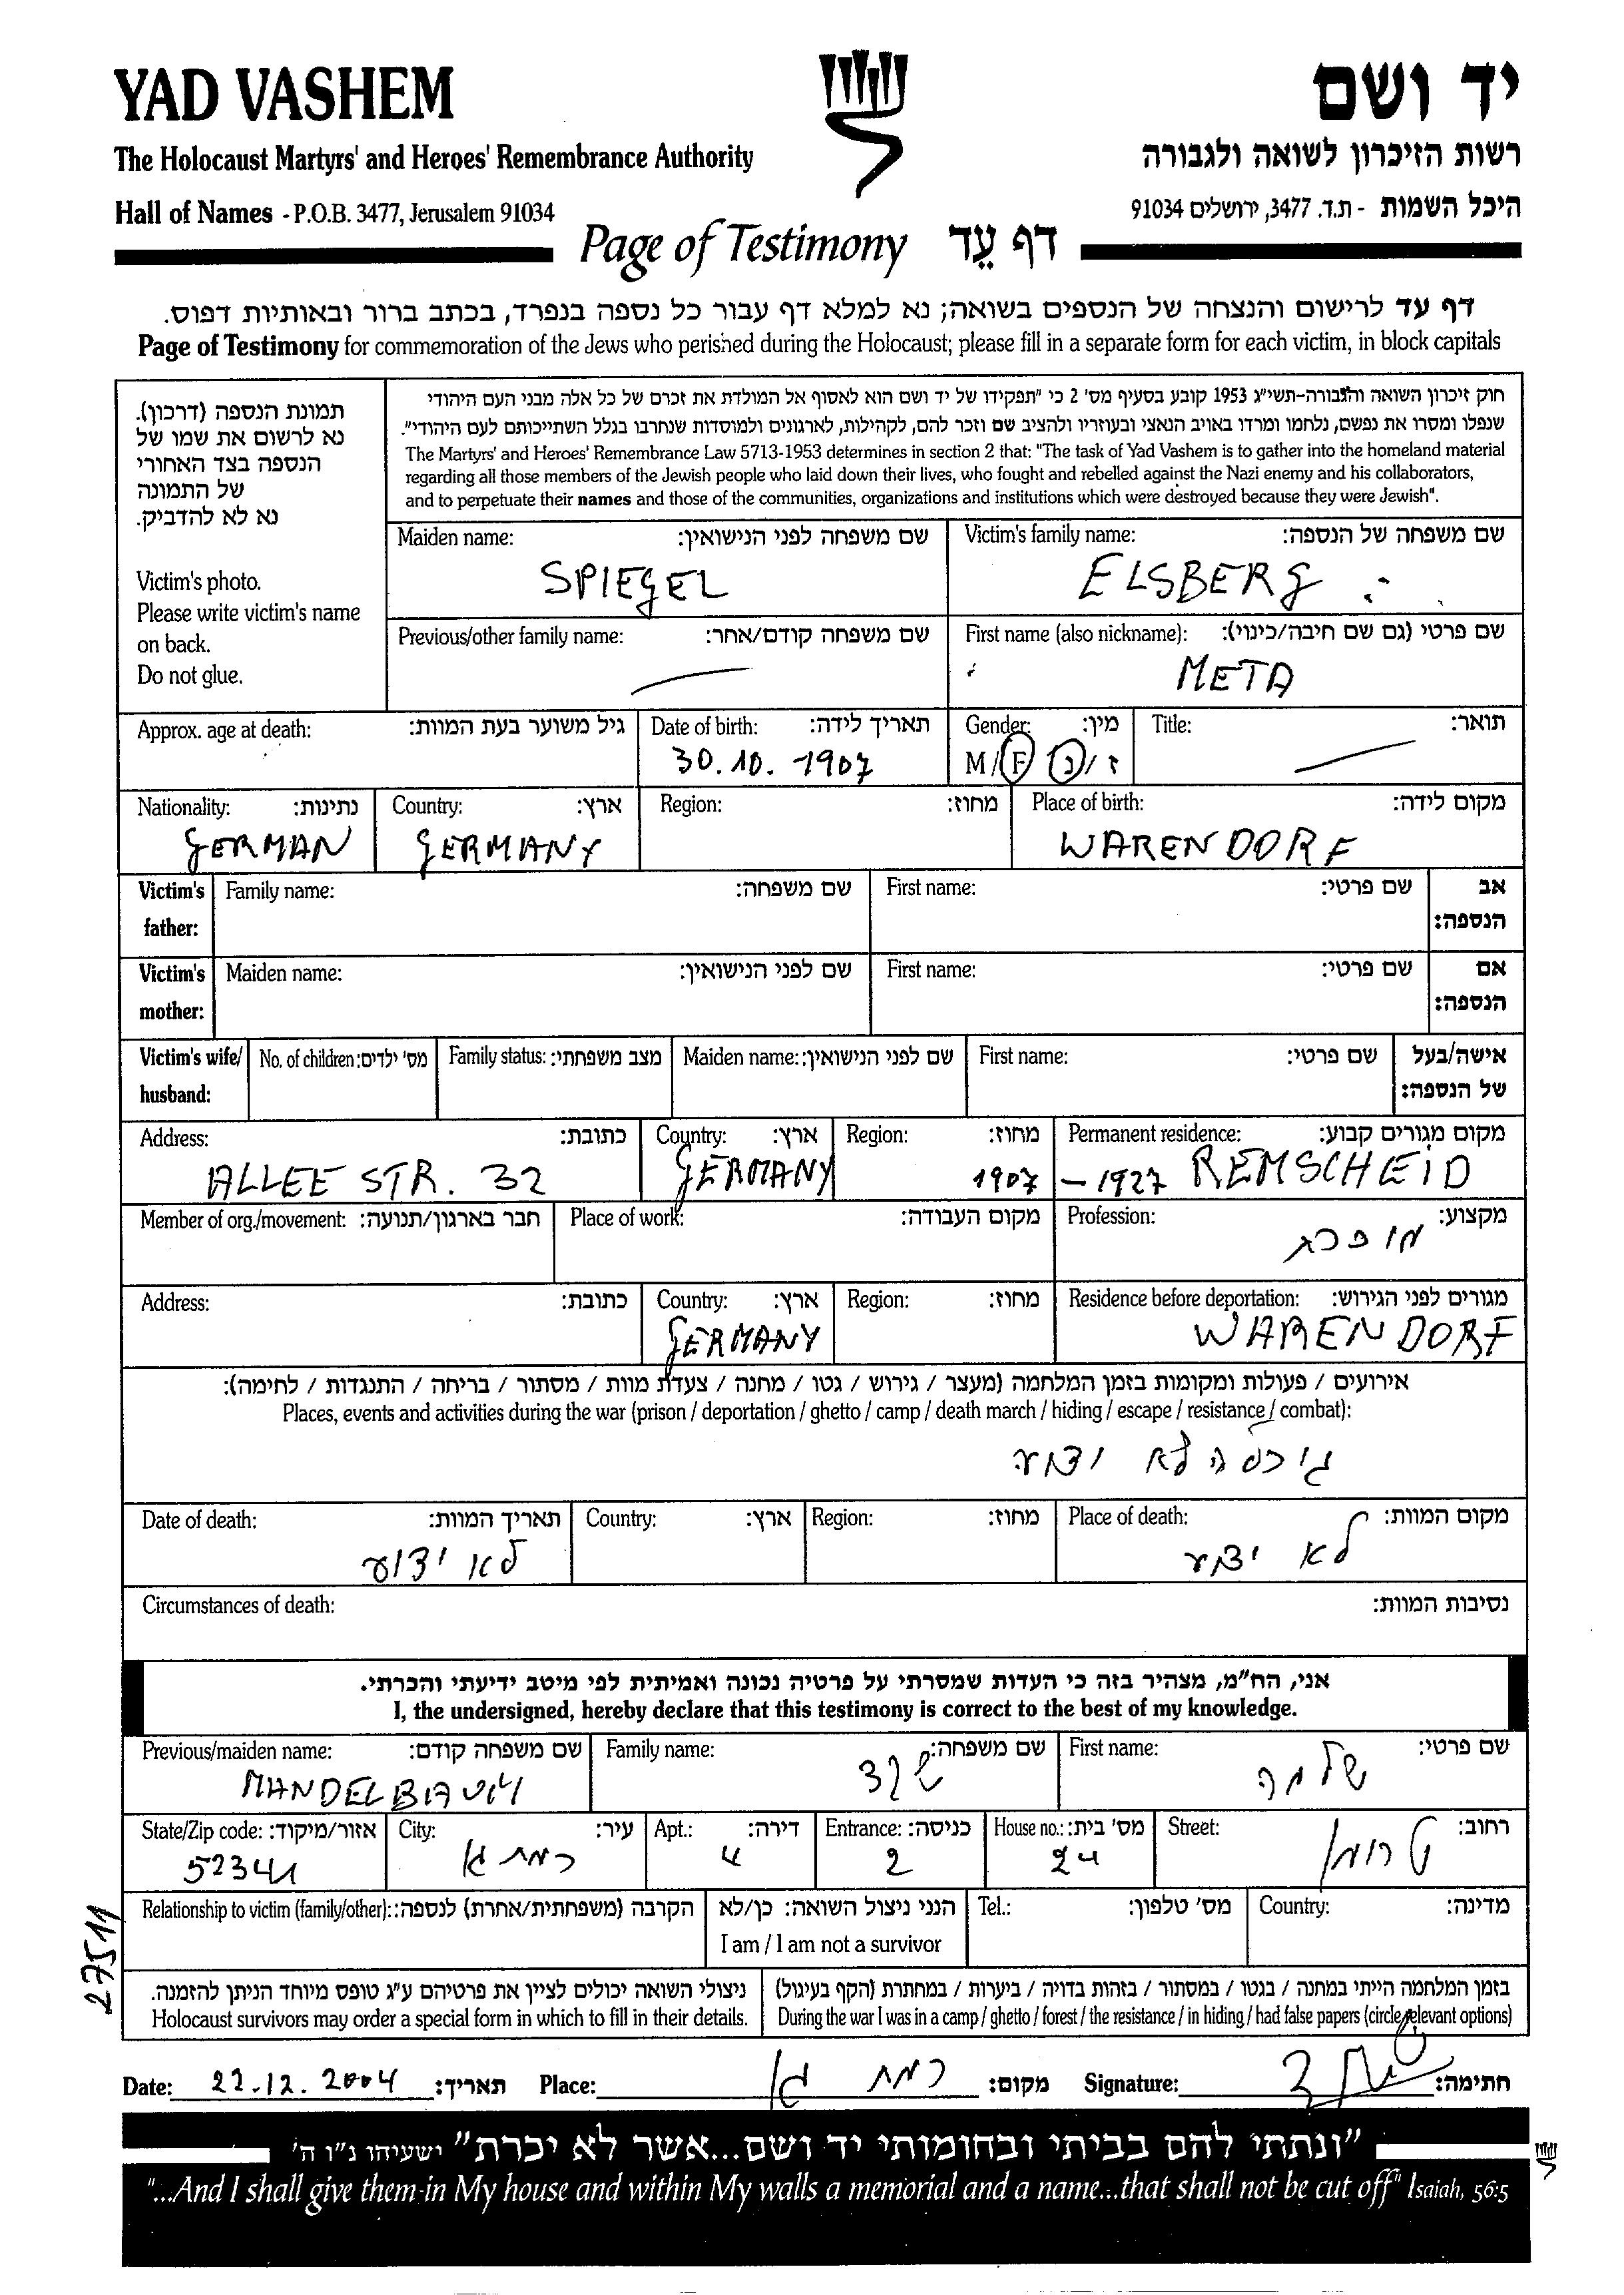 YAD VASHEM
יד ושם
The Holocaust Martyrs' and Heroes' Remembrance Authority
רשות הזיכרון לשואה ולגבורה
Hall of Names - P.O.B. 3477, Jerusalem 91034
היכל השמות - ת.ד. 3477, ירושלים 91034
Page of Testimony דף עֵד
דף עד לרישום והנצחה של הנספים בשואה; נא למלא דף עבור כל נספה בנפרד, בכתב ברור ובאותיות דפוס.
Page of Testimony for commemoration of the Jews who perished during the Holocaust; please fill in a separate form for each victim, in block capitals
תמונת הנספה (דרכון).
נא לרשום את שמו של
הנספה בצד האחורי
של התמונה
נא לא להדביק.
Victim's photo.
Please write victim's name
on back.
Do not glue.
חוק זיכרון השואה והגבורה-תשי"ג 1953 קובע בסעיף מס' 2 כי "תפקידו של יד ושם הוא לאסוף אל המולדת את זכרם של כל אלה מבני העם היהודי
שנפלו ומסרו את נפשם, נלחמו ומרדו באויב הנאצי ובעוזריו ולהציב שם וזכר להם, לקהילות, לארגונים ולמוסדות שנחרבו בגלל השתייכותם לעם היהודי".
The Martyrs' and Heroes' Remembrance Law 5713-1953 determines in section 2 that: "The task of Yad Vashem is to gather into the homeland material
regarding all those members of the Jewish people who laid down their lives, who fought and rebelled against the Nazi enemy and his collaborators,
and to perpetuate their names and those of the communities, organizations and institutions which were destroyed because they were Jewish".
Maiden name: שם משפחה לפני הנישואין:
SPIEGEL
Victim's family name: שם משפחה של הנספה:
ELSBERG
Previous/other family name: שם משפחה קודם/אחר:
First name (also nickname): שם פרטי (גם שם חיבה/כינוי):
META
Approx. age at death: גיל משוער בעת המוות:
Date of birth: תאריך לידה:
30.10.1907
Gender: מין:
M/F ז/נ
Title: תואר:
Nationality: נתינות:
GERMAN
Country: ארץ:
GERMANY
Region: מחוז:
Place of birth: מקום לידה:
WARENDORF
Victim's father: Family name: שם משפחה: First name: שם פרטי: אב הנספה:
Victim's mother: Maiden name: שם לפני הנישואין: First name: שם פרטי: אם הנספה:
Victim's wife/ husband: No. of children: מס' ילדים: Family status: מצב משפחתי: Maiden name: שם לפני הנישואין: First name: שם פרטי: אישה/בעל של הנספה:
Address: כתובת:
ALLEE STR. 32
Country: ארץ:
GERMANY
Region: מחוז:
Permanent residence: מקום מגורים קבוע:
1907 - 1927 REMSCHEID
Member of org./movement: חבר בארגון/תנועה:
Place of work: מקום העבודה:
Profession: מקצוע:
מוכרת
Address: כתובת:
Country: ארץ:
GERMANY
Region: מחוז:
Residence before deportation: מגורים לפני הגירוש:
WARENDORF
אירועים / פעולות ומקומות בזמן המלחמה (מעצר / גירוש / גטו / מחנה / צעדת מוות / מסתור / בריחה / התנגדות / לחימה):
Places, events and activities during the war (prison / deportation / ghetto / camp / death march / hiding / escape / resistance / combat):
לא ידוע
Date of death: תאריך המוות:
לא ידוע
Country: ארץ:
Region: מחוז:
Place of death: מקום המוות:
לא ידוע
Circumstances of death: נסיבות המוות:
אני, הח"מ, מצהיר בזה כי העדות שמסרתי על פרטיה נכונה ואמיתית לפי מיטב ידיעתי והכרתי.
I, the undersigned, hereby declare that this testimony is correct to the best of my knowledge.
Previous/maiden name: שם משפחה קודם:
MANDELBAUM
Family name: שם משפחה:
שקד
First name: שם פרטי:
שלמה
State/Zip code: אזור/מיקוד:
52341
City: עיר:
רמת גן
Apt.: דירה:
4
Entrance: כניסה:
2
House no.: מס' בית:
24
Street: רחוב:
טרומן
Relationship to victim (family/other): הקרבה (משפחתית/אחרת) לנספה:
הנני ניצול השואה: כן/לא
I am / I am not a survivor
Tel.: מס' טלפון:
Country: מדינה:
27511
ניצולי השואה יכולים לציין את פרטיהם ע"ג טופס מיוחד הניתן להזמנה.
Holocaust survivors may order a special form in which to fill in their details.
בזמן המלחמה הייתי במחנה / בגטו / במסתור / בזהות בדויה / ביערות / במחתרת (הקף בעיגול)
During the war I was in a camp / ghetto / forest / the resistance / in hiding / had false papers (circle relevant options)
Date: 22.12.2004 תאריך: Place: רמת גן מקום: Signature: חתימה:
"ונתתי להם בביתי ובחומותי יד ושם...אשר לא יכרת" ישעיהו נ"ו ה'
"...And I shall give them in My house and within My walls a memorial and a name...that shall not be cut off" Isaiah, 56:5